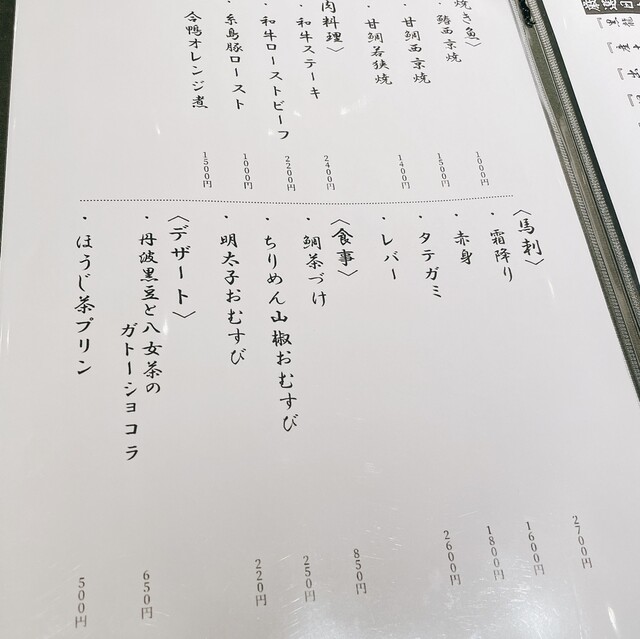 焼き魚〉
・鰆西京焼
1000円
・甘鯛西京焼
1500円
・甘鯛若狭焼
1400円
肉料理〉
・和牛ステーキ
2400円
・和牛ローストビーフ
2200円
・糸島豚ロースト
1000円
合鴨オレンジ煮
1500円
〈馬刺〉
・霜降り
2700円
・赤身
1600円
・タテガミ
1800円
・レバー
2600円
〈食事〉
・鯛茶づけ
850円
・ちりめん山椒おむすび
250円
・明太子おむすび
220円
〈デザート〉
・丹波黒豆と八女茶の
ガトーショコラ
650円
・ほうじ茶プリン
500円